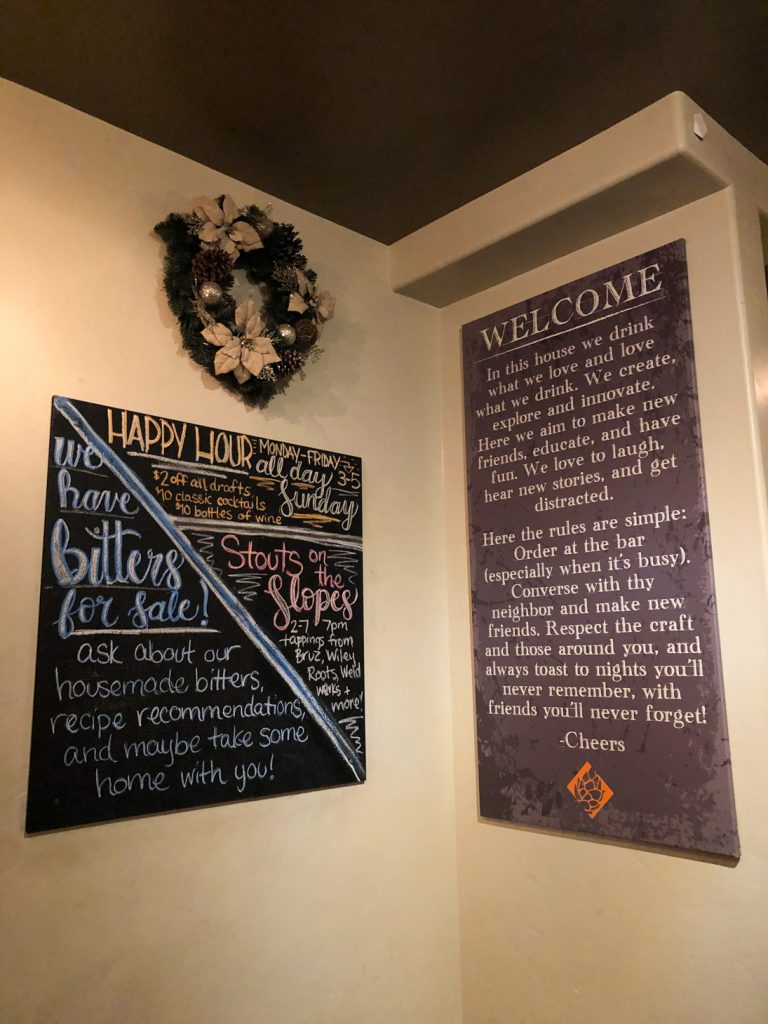 we
have
bitters
for sale!
ask about our
housemade bitters,
recipe recommendations,
and maybe take some
home with you!
HAPPY HOUR
MONDAY-FRIDAY
3-5
all day
Sunday
$2 off all drafts
$10 classic cocktails
$10 bottles of wine
Stouts on
the
Slopes
2-7 7pm
tappings from
Bruz, Wiley
Roots, Weld
Werks +
more!
WELCOME
In this house we drink
what we love and love
what we drink. We create,
explore and innovate.
Here we aim to make new
friends, educate, and have
fun. We love to laugh,
hear new stories, and get
distracted.
Here the rules are simple:
Order at the bar
(especially when it's busy).
Converse with thy
neighbor and make new
friends. Respect the craft
and those around you, and
always toast to nights you'll
never remember, with
friends you'll never forget!
-Cheers